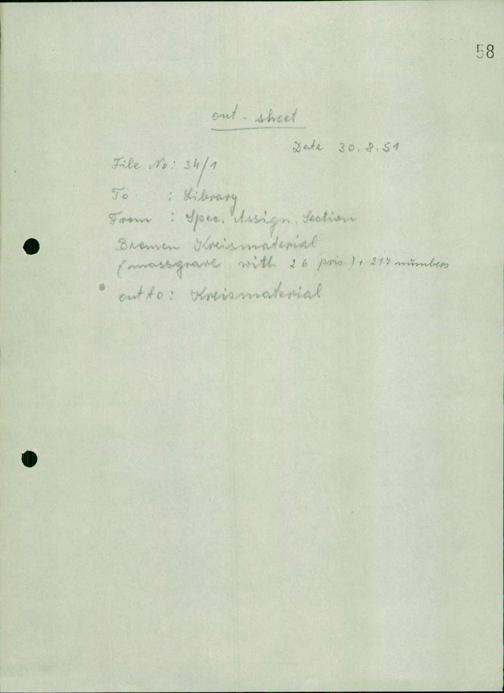 58
out-sheet
Date 30.8.51
File No: 34/1
To : Library
From : Spec. Assign. Section
Bremen Kreismaterial
(massgrave with 26 pris.) + 217 numbers
out to: Kreismaterial